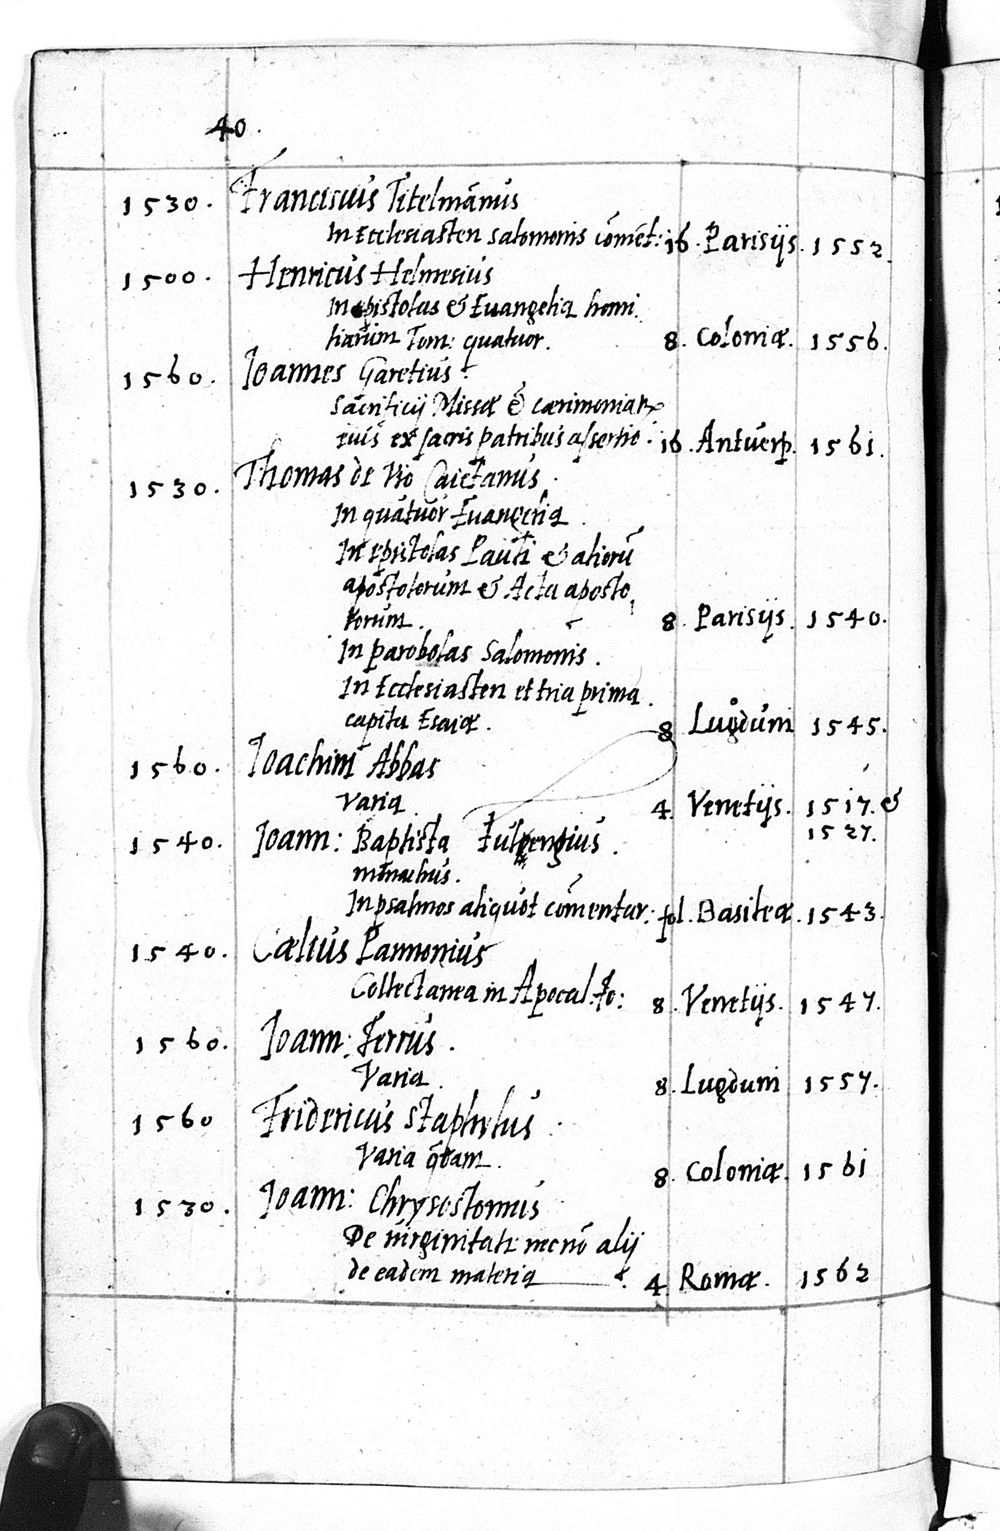 40.
1530. Franciscus Titelmānus
In Ecclesiasten Salomonis cōmēt: 16. Parisijs. 1552.
1500. Henricus Helmesius
In epistolas & Euangelia homi
liarum Tom: quatuor. 8. Coloniæ. 1556.
1560. Ioannes Garetius
Sacrificij Missæ & cærimoniarꝝ
eius ex sacris patribus assertio. 16. Antuerp. 1561.
1530. Thomas de Vio Caietanus.
In quatuor Euangelia.
In epistolas Pauli & aliorū
apostolorum & Acta aposto,
lorum. 8. Parisijs. 1540.
In parobolas Salomonis.
In Ecclesiasten et tria prima
capita Esaiæ. 8 Lugduni 1545.
1560. Ioachim Abbas
varia 4. Venetijs. 1517. &
1527.
1540. Ioann: Baptista Fulgengius.
monachus.
In psalmos aliquot cōmentar: fol. Basileæ. 1543.
1540. Cælius Pannonius
Collectanea in Apocal. Io: 8. Venetijs. 1547.
1560. Ioann: Ferrus.
Varia. 8. Lugduni 1557.
1560 Fridericus Staphylus.
Varia q̄dam. 8. Coloniæ. 1561
1530. Ioann: Chrysostomus
De virginitate necnō alij
de eadem materia 4 Romæ. 1562